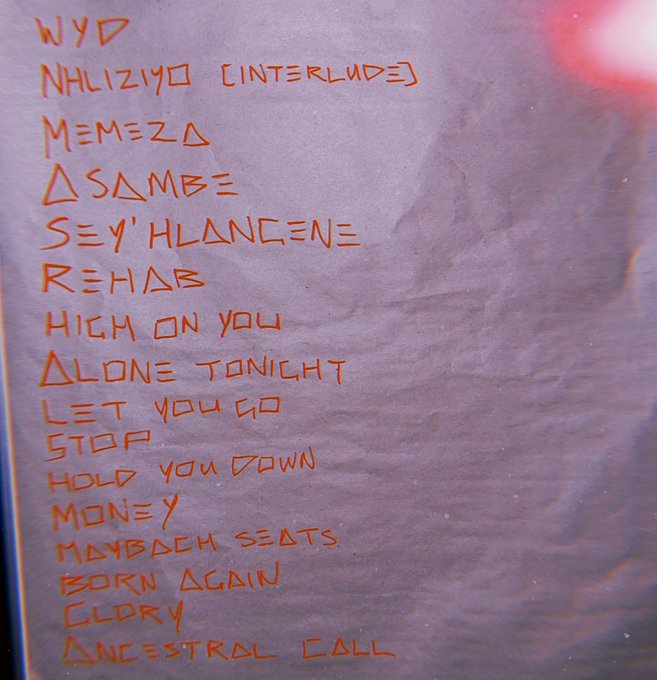 WYD
NHLIZIYO [INTERLUDE]
MEMEZA
ASAMBE
SEY'HLANGENE
REHAB
HIGH ON YOU
ALONE TONIGHT
LET YOU GO
STOP
HOLD YOU DOWN
MONEY
MAYBACH SEATS
BORN AGAIN
GLORY
ANCESTRAL CALL